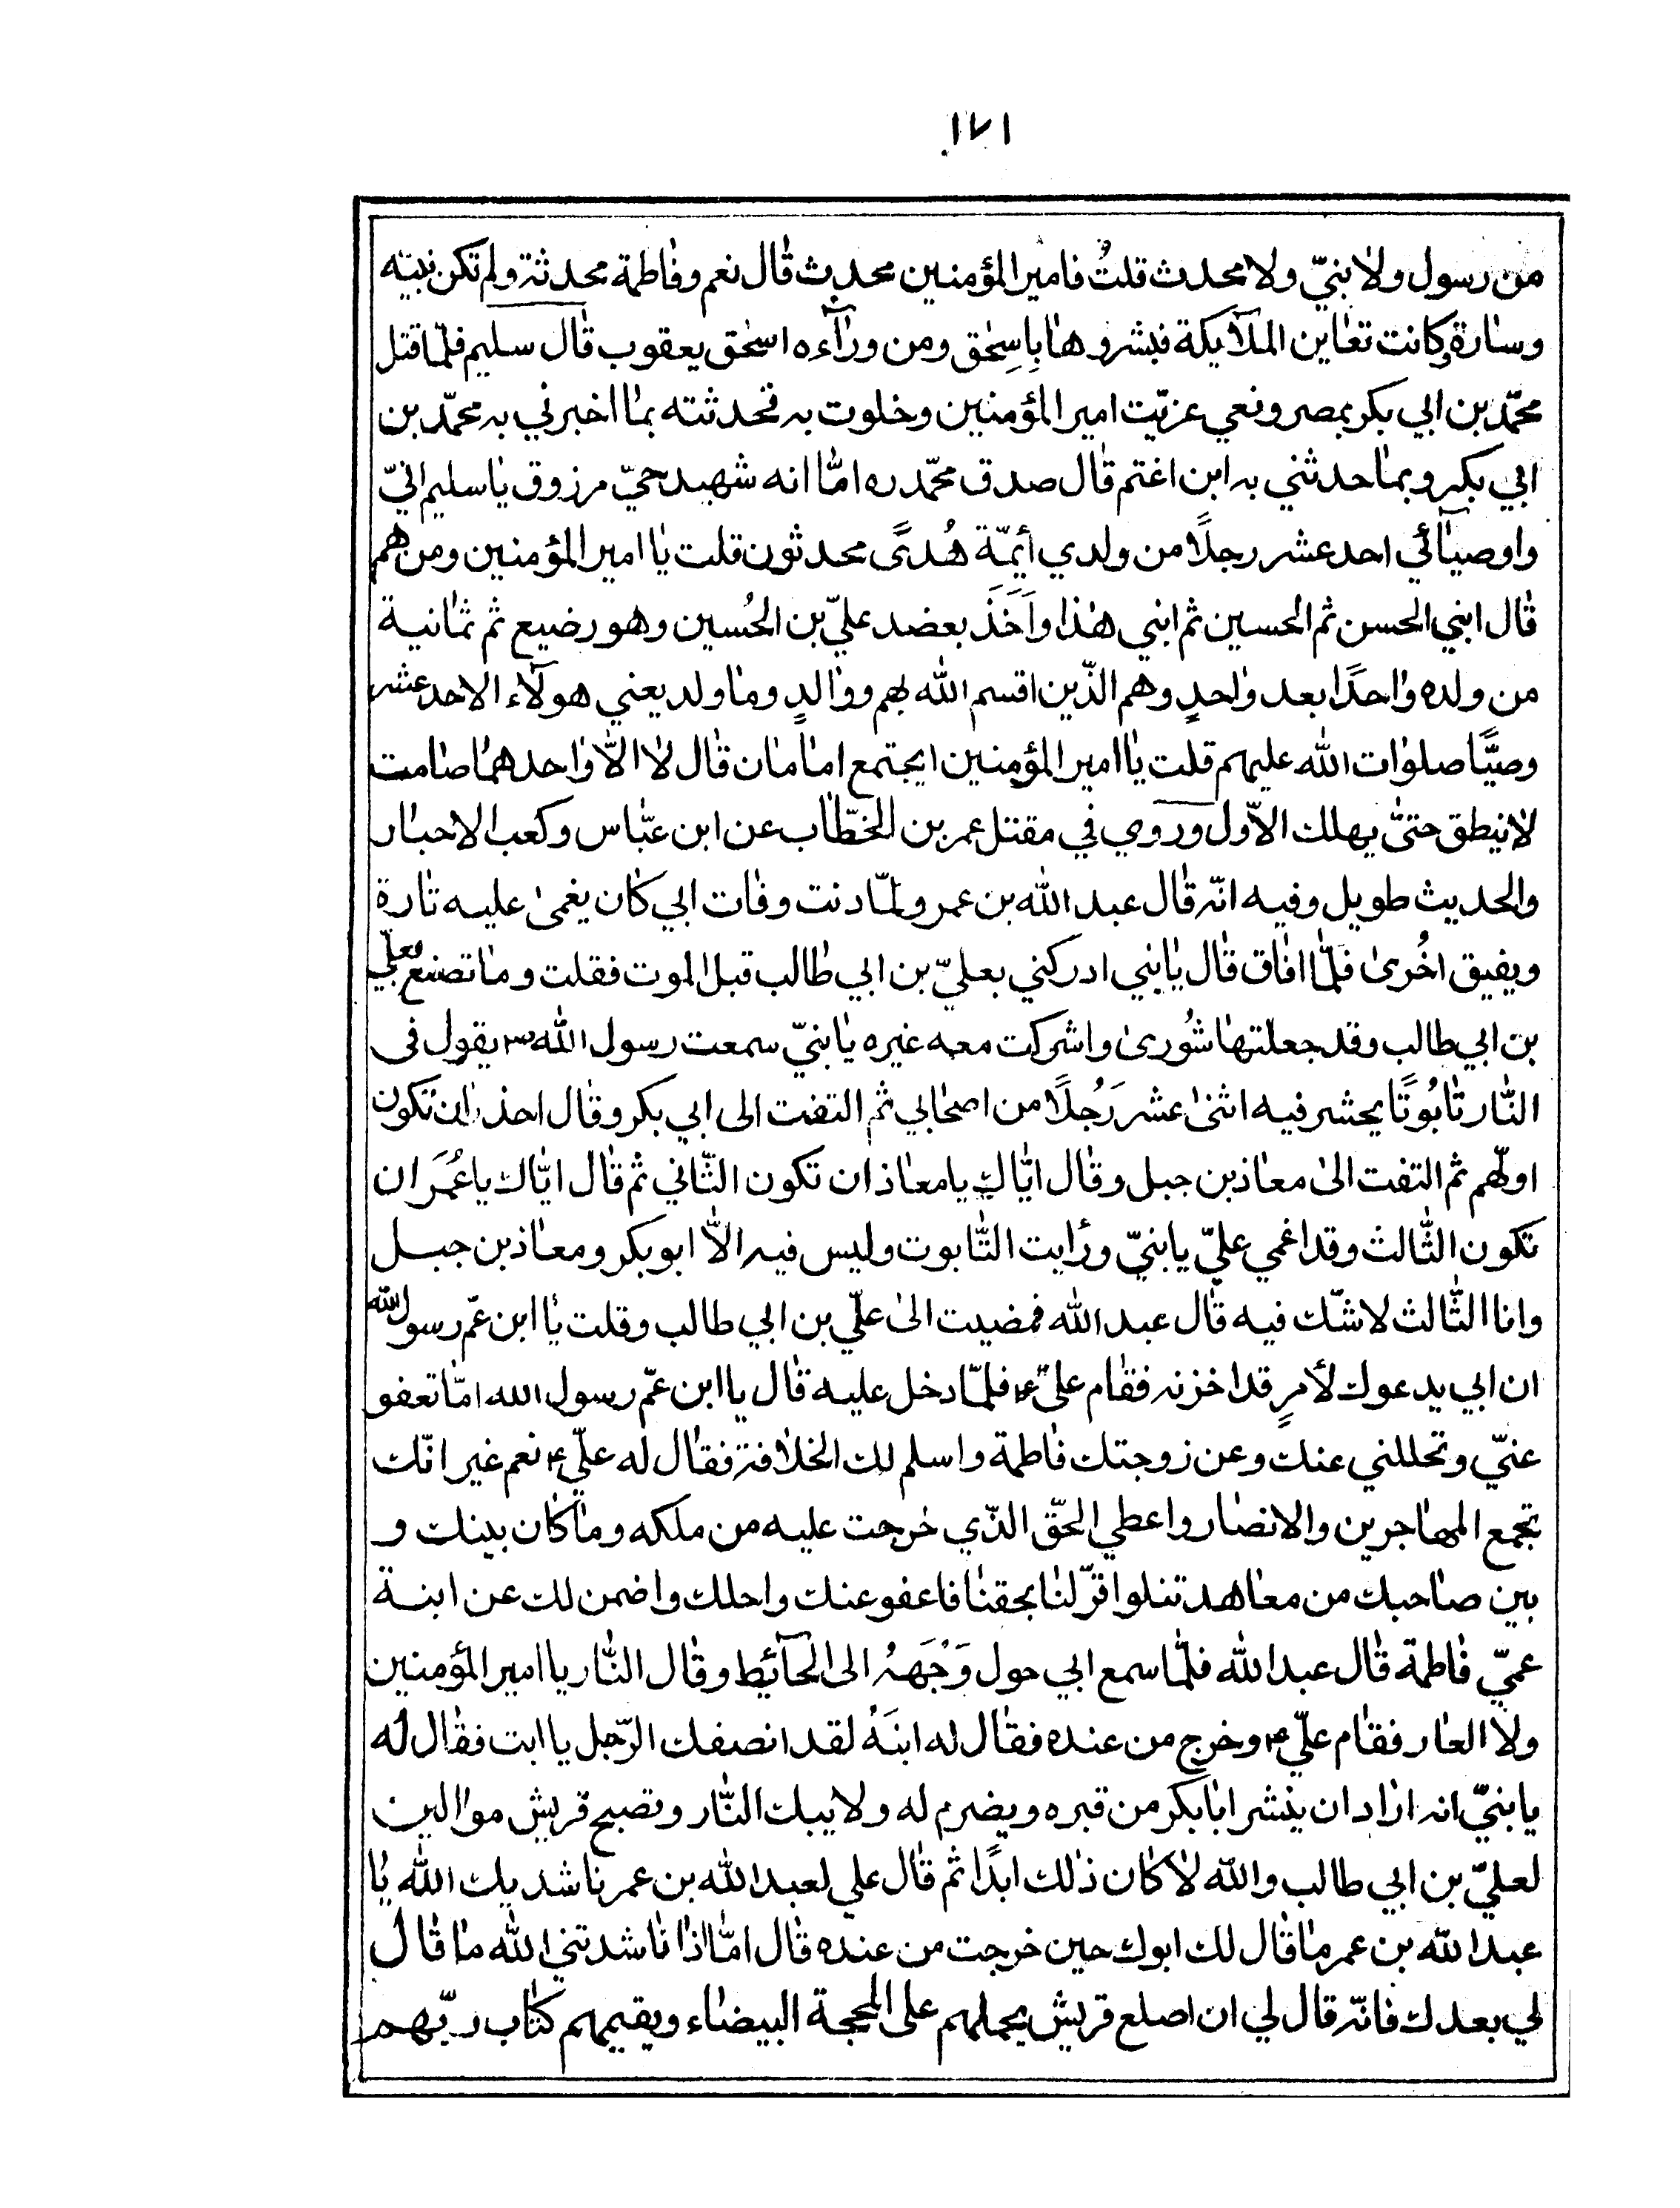 ١٧١
من رسول ولا نبيّ ولا محدث قلتُ فامير المؤمنين محدث قال نعم وفاطمة محدثة ولم تكن نبيته
وسارة وكانت تعاين الملآيكة فبشروها باسِحٰق ومن ورآءه اسحٰق يعقوب قال سليم فلمّا قتل
محمّد بن ابي بكر بمصر ونعي عزيّت امير المؤمنين وخلوت به فحدثته بما اخبرني به محمّد بن
ابي بكر وبما حدثني به ابن اغتم قال صدق محمّد ره امّا انه شهيد حيّ مرزوق يا سليم انيّ
واوصيآئي احد عشر رجلًا من ولدي أيمّة هُدىً محدثون قلت يا امير المؤمنين ومن هم
قال ابني الحسن ثم الحسين ثم ابني هذا واَخَذَ بعضد عليّ بن الحُسين وهو رضيع ثم ثمانية
من ولده واحدًا بعد واحدٍ وهم الذّين اقسم الله بهم ووالدٍ وما ولد يعني هولآء الاحد عشر
وصيًّا صلوات الله عليهم قلت يا امير المؤمنين ايجتمع امامان قال لا الّا واحدهما صامت
لا ينطق حتىّ يهلك الاّول وروي في مقتل عمر بن الخطّاب عن ابن عبّاس وكعب الاحبار
والحديث طويل وفيه انّه قال عبد الله بن عمر ولمّا دنت وفات ابي كان يغمى عليه تارة
ويفيق اخُرى فلمّا افاق قال يا بني ادركني بعليّ بن ابي طالب قبل الموت فقلت وما تصنع بعلّي
بن ابي طالب وقد جعلتها شُورى واشركت معه غيره يا بنيّ سمعت رسول الله ص يقول فى
النّار تابُوتًا يحشر فيه اثنى عشر رَجُلًا من اصحابي ثم التفت الى ابي بكر وقال احذر ان تكون
اولّهم ثم التفت الى معاذ بن جبل وقال ايّاك يا معاذ ان تكون الثّاني ثم قال ايّاك يا عُمَر ان
تكون الثّالث وقد اغمي عليّ يا بنيّ ورأيت التّابوت وليس فيه الّا ابو بكر ومعاذ بن جبل
وانا الثّالث لا شّك فيه قال عبد الله فمضيت الى علّي بن ابي طالب وقلت يا ابن عمّ رسول الله
ان ابي يدعوك لأمرٍ قد احزنه فقام عليّ ع فلمّا دخل عليه قال يا ابن عمّ رسول الله امّا تعفو
عنيّ وتحللني عنك وعن زوجتك فاطمة واسلم لك الخلافة فقال له علّي ع نعم غير انّك
تجمع المهاجرين والانصار واعطي الحقّ الذّي خرجت عليه من ملكه وما كان بينك و
بين صاحبك من معاهدتنا واقرّ لنا بحقنا فاعفو عنك واحلك واضمن لك عن ابنة
عميّ فاطمة قال عبد الله فلمّا سمع ابي حول وَجْهَهُ الى الحآئِط وقال النّار يا امير المؤمنين
ولا العار فقام علّي ع وخرج من عنده فقال له ابنَهُ لقد انصفك الرّجل يا ابت فقال له
يا بنيّ انه اراد ان ينشر ابا بكر من قبره ويضرم له ولابيك النّار وتصبح قريش موالين
لعليّ بن ابي طالب والله لا كان ذلك ابدًا ثم قال علي لعبد الله بن عمر ناشديك الله يا
عبد الله بن عمر ما قال لك ابوك حين خرجت من عنده قال امّا اذا ناشدتني الله ما قال
لي بعدك فانّه قال لي ان اصلع قريش يحملهم على المحجة البيضاء ويقيمهم كتاب ربّهم